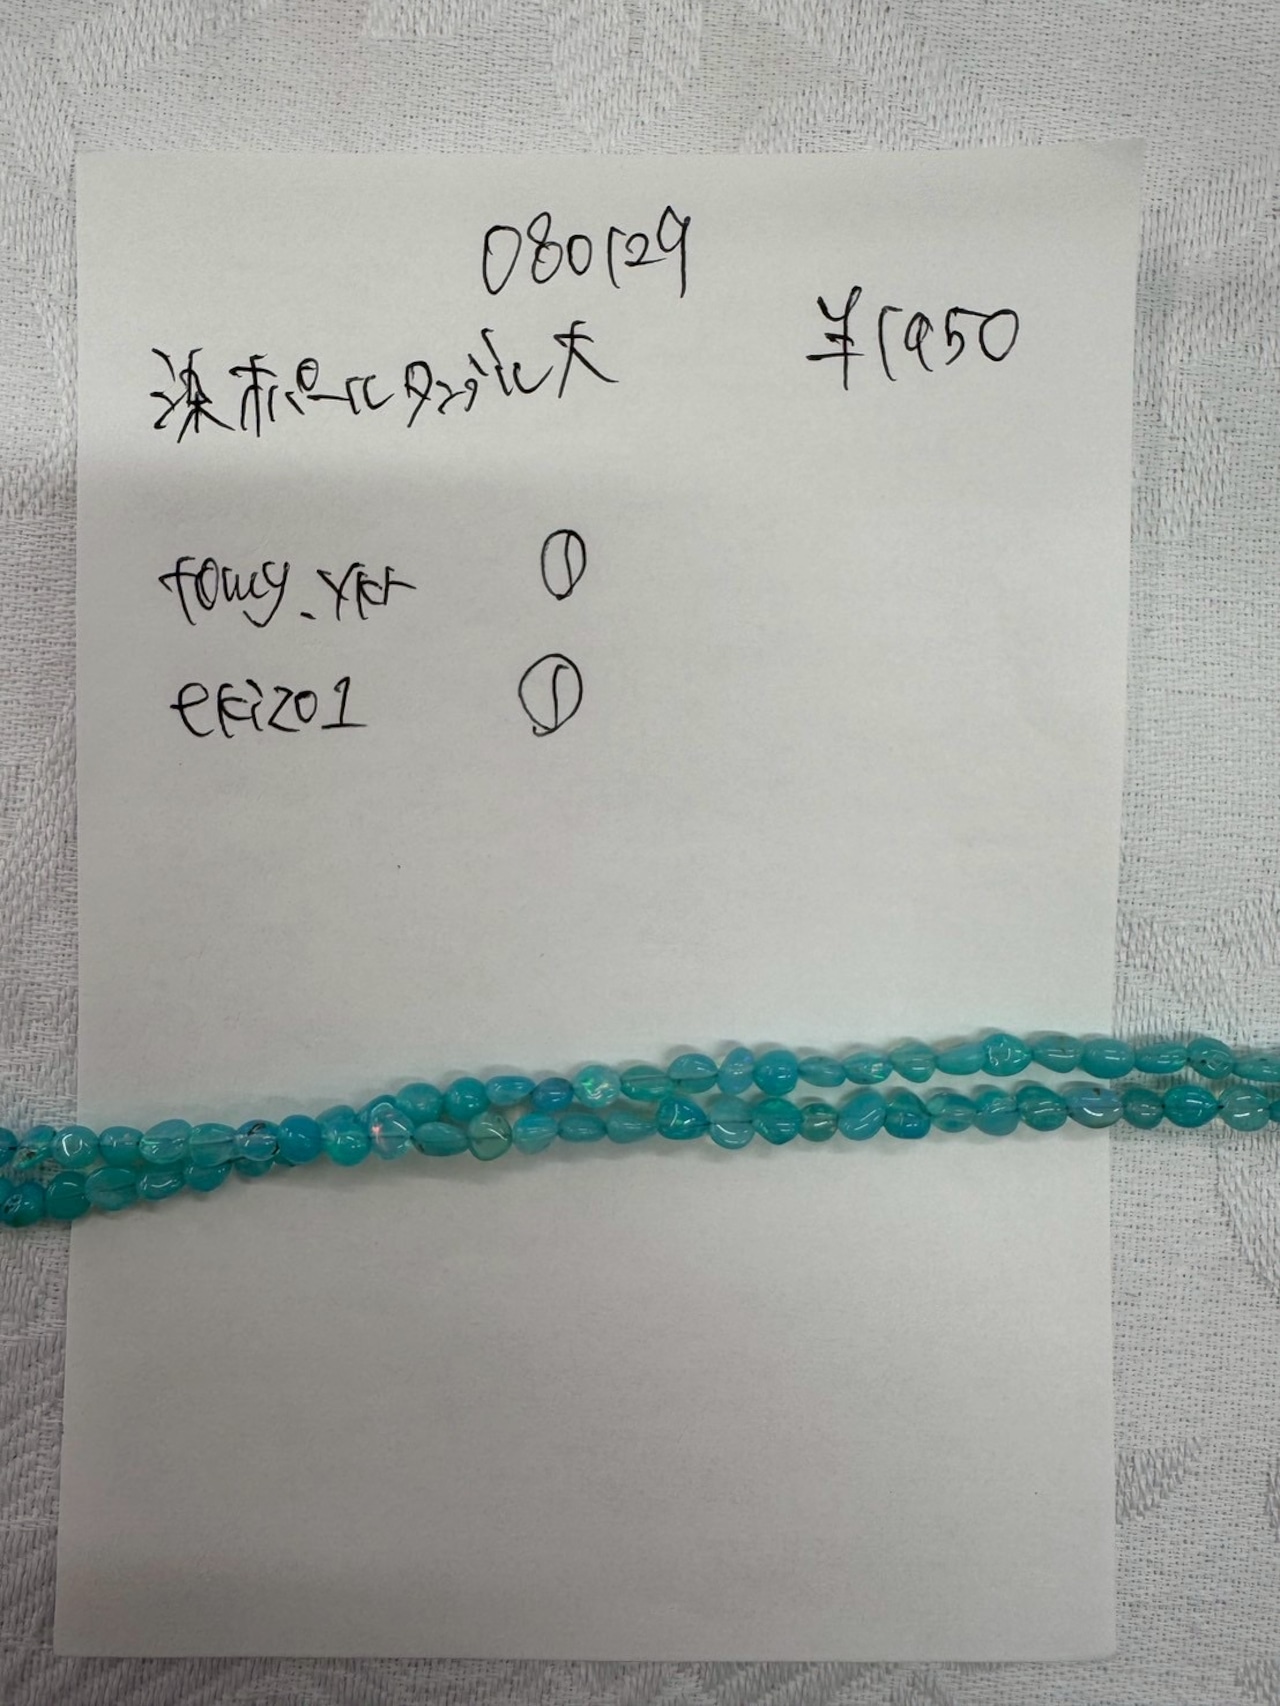 080129
染オパールタンブル大 ¥1950
tomy.ykt ①
ekizo1 ①